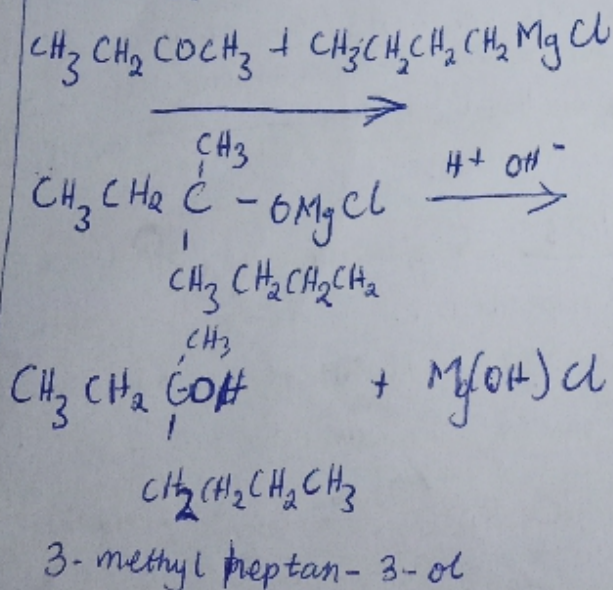 CH₃ CH₂ COCH₃ + CH₃CH₂CH₂CH₂MgCl
CH₃
CH₃ CH₂ C - OMgCl H+ OH⁻
CH₃ CH₂CH₂CH₂
CH₃
CH₃ CH₂ COH + Mg(OH)Cl
CH₂CH₂CH₂CH₃
3- methyl heptan- 3- ol